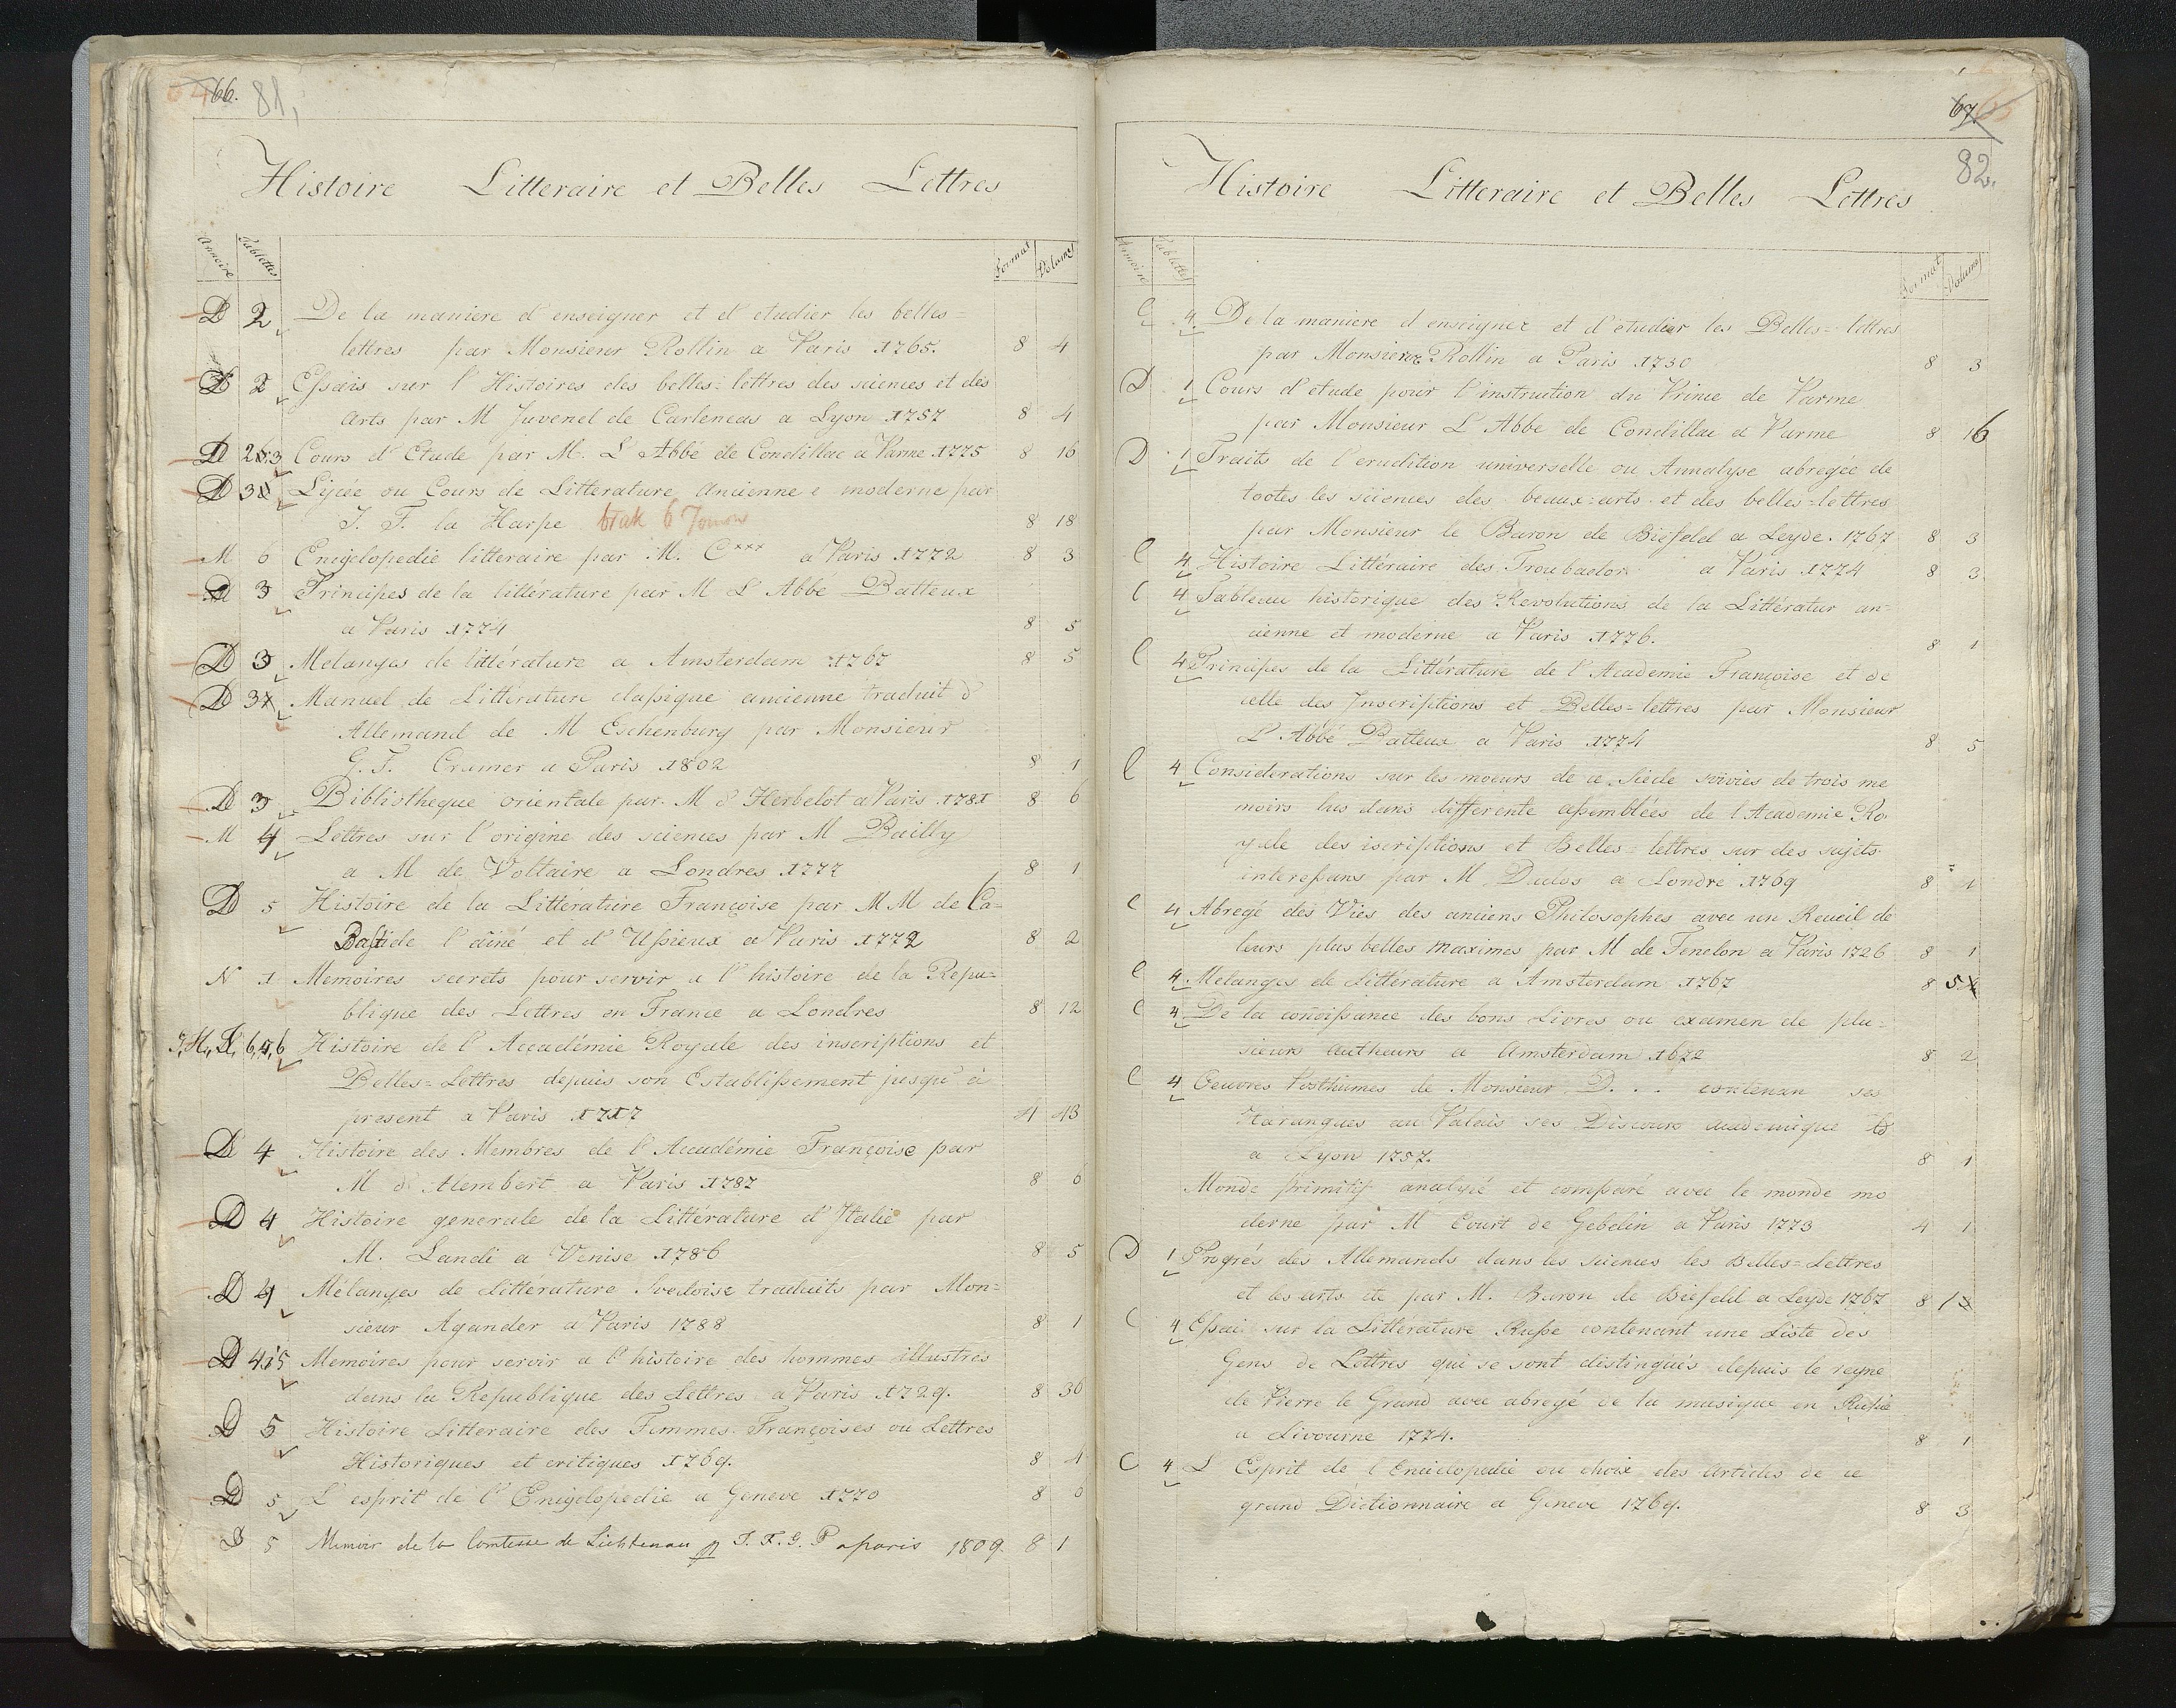 66. 81,
Histoire Litteraire et Belles Lettres
Armoire Tablettes Format Volumes
D 2 De la maniere d'enseigner et d'etudier les belles=
lettres par Monsieur Rollin a Paris 1765. 8 4
D 2 Essais sur l'Histoires des belles=lettres des sciences et des
arts par M Juvenel de Carlencas a Lyon 1757 8 4
D 2 3 Cours d'Etude par M. L'Abbé de Condillac a Parme 1775 8 16
D 3 Lycée ou Cours de Litterature Ancienne e moderne par
J. F. la Harpe brak 6 Tomow 8 18
M 6 Encyclopedie litteraire par M. C*** a Paris 1772 8 3
D 3 Principes de la littérature par M L'Abbe Batteux
a Paris 1774 8 5
D 3 Melanges de littérature a Amsterdam 1767 8 5
D 3 Manuel de Littérature classique ancienne traduit d'
Allemand de M Eschenburg par Monsieur
G. F. Cramer a Paris 1802 8 1
D 3 Bibliotheque orientale par M d'Herbelot a Paris 1781 8 6
M 4 Lettres sur l'origine des sciences par M Bailly
a M de Voltaire a Londres 1777 8 1
D 5 Histoire de la Littérature Françoise par MM de La=
Bastide l'ainé et d'Ussieux a Paris 1772 8 2
N 1 Memoires secrets pour servir a l'histoire de la Repu=
blique des Lettres en France a Londres 8 12
Histoire de l'Académie Royale des inscriptions et
Belles=Lettres depuis son Establissement jusqu'à
present a Paris 1717 4 43
D 4 Histoire des Membres de l'Académie Françoise par
M d'Alembert a Paris 1787 8 6
D 4 Histoire generale de la Littérature d'Italie par
M. Landi a Venise 1786 8 5
D 4 Mélanges de Littérature Svedoise traduits par Mon=
sieur Agander a Paris 1788 8 1
D 4.i5 Memoires pour servir a l'histoire des hommes illustres
dans la Republique des Lettres a Paris 1729. 8 36
D 5 Histoire Litteraire des Femmes Françoises ou Lettres
Historiques et critiques 1769. 8 4
D 5 L'esprit de l'Encyclopedie a Geneve 1770 8
D 5 Memoir de la Comtesse de Lichtenau J. F. G. P a paris 1809. 8 1
67. 82.
Histoire Litteraire et Belles Lettres
Armoire Tablettes Format Volumes
C 4 De la maniere d'enseigner et d'etudier les Belles=lettres
par Monsieur Rollin a Paris 1730 8 3
D 1 Cours d'etude pour l'instruction du Prince de Parme
par Monsieur L'Abbe de Condillac a Parme 8 16
D 1 Traits de l'erudition universelle ou Annalyse abregée de
tootes les sciences des beaux=arts et des belles=lettres
par Monsieur le Baron de Biefeld a Leyde. 1767 8 3
C 4 Histoire Littéraire des Troubador a Paris 1774 8 3
C 4 Tableau historique des Revolutions de la Littératur an=
cienne et moderne a Paris 1776. 8 1
C 4 Principes de la Littérature de l'Academie Françoise et de
celle des Inscriptions et Belles=lettres par Monsieur
L'Abbé Batteux a Paris 1774 8 5
C 4 Considerations sur les moeurs de ce Siécle suivies de trois me
moirs lus dans differente assemblées de l'Academie Ro
yale des iscriptions et Belles=lettres sur des sujets
interessans par M Duclos a Londre 1769 8 1
C 4 Abregé des Vies des anciens Philosophes avec un Recueil de
leurs plus belles maximes par M de Fenelon a Paris 1726 8 1
C 4 Melanges de Littérature a Amsterdam 1767 8 5
C 4 De la connoissance des bons Livres ou examen de plu=
sieurs autheurs a Amsterdam 1672 8 2
C 4 Oeuvres Posthumes de Monsieur D . . . contenan ses
Harangues au Palais ses Discours academique
a Lyon 1757. 8 1
Monde primitif analysé et comparé avec le monde mo
derne par M Court de Gebelin a Paris 1773 4 1
D 1 Progrés des Allemands dans les sciences les Belles=Lettres
et les arts etc par M. Baron de Biefeld a Leyde 1767 8 1
C 4 Essai sur la Littérature Russe contenant une Liste des
Gens de Lettres qui se sont distingués depuis le regne
de Pierre le Grand avec abregé de la musique en Russie
a Livourne 1774. 8 1
C 4 L'Esprit de l'Enciclopedie ou choix des Articles de ce
grand Dictionnaire a Geneve 1769. 8 3